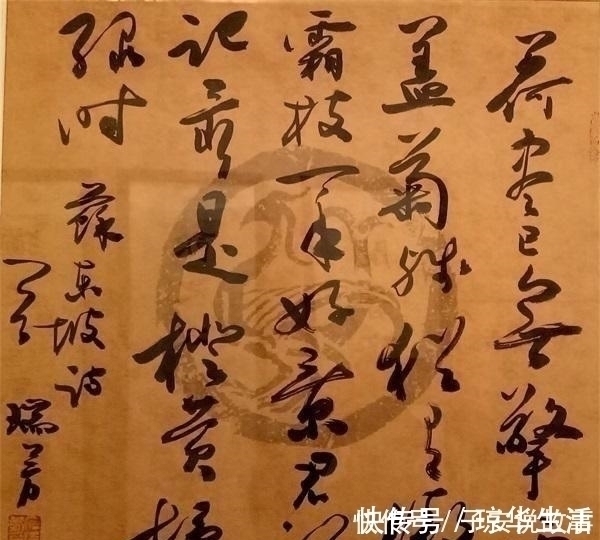 荷尽已无擎
盖菊残犹有傲
霜枝一年好景君
记最是橙黄橘
绿时
蘇东坡诗
瑞芳
快传号/
生活